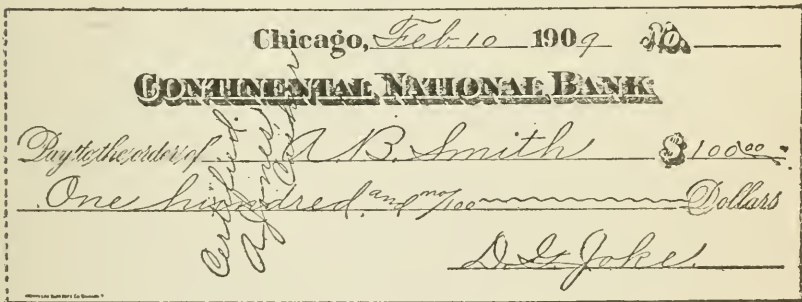 Chicago, Feb. 10 1909 No.
CONTINENTAL NATIONAL BANK
Pay to the order of A. B. Smith $100.00
One hundred and no/100 Dollars
D. G. Joke.
Certified.
A. Jones,
Cashier